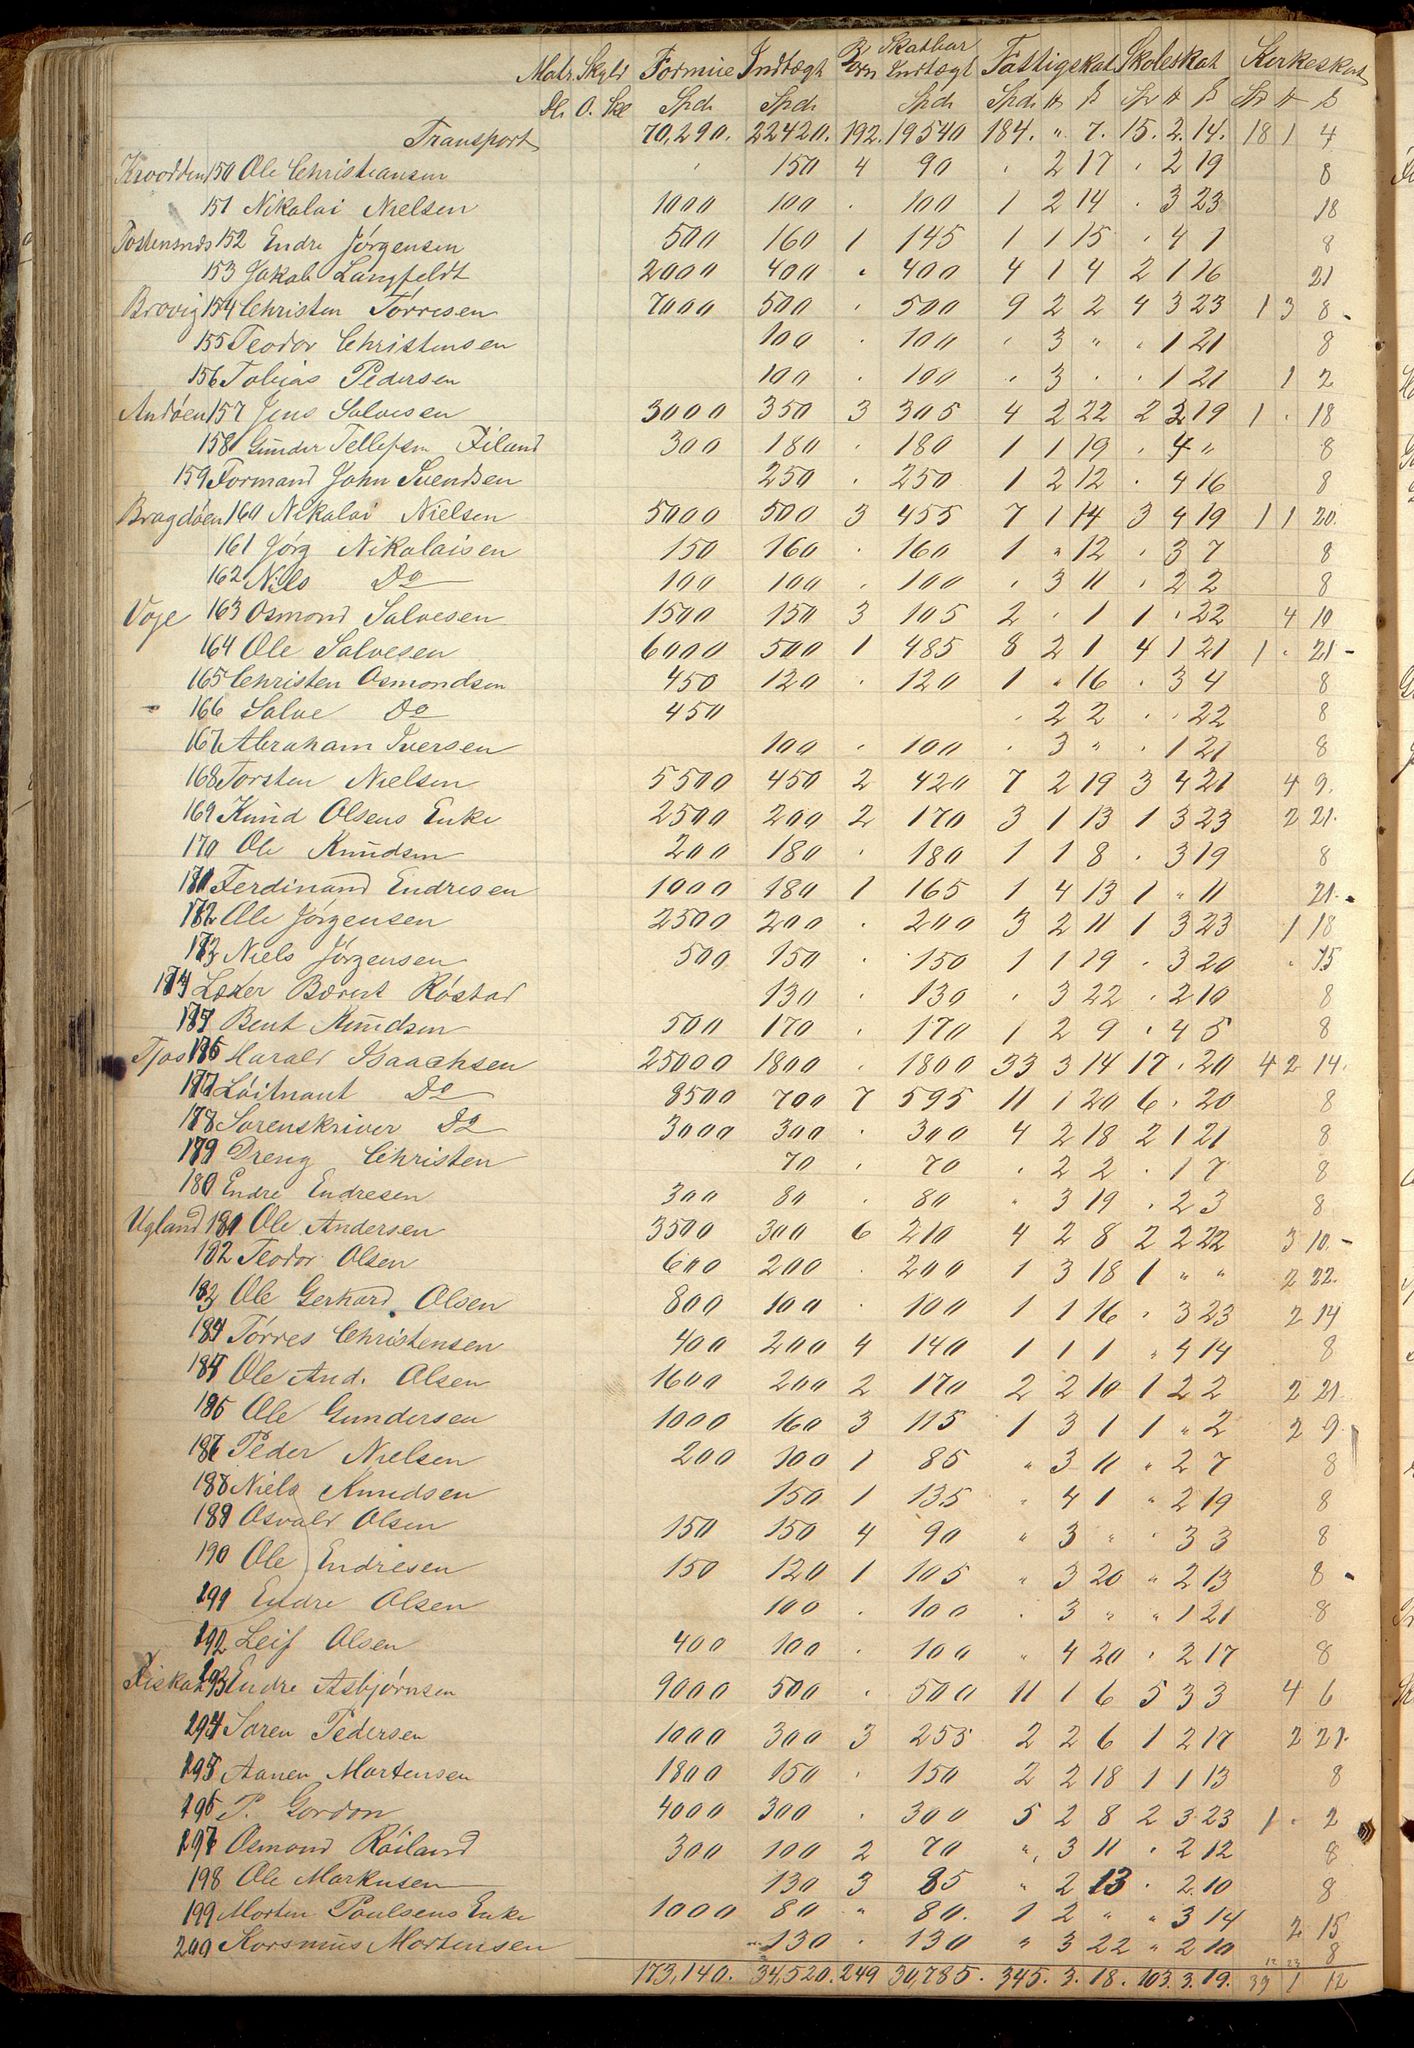 Matr. Skyld Formue Indtægt Børn Skatbar Indtægt Fattigskat Skoleskat Kirkeskat
Dl. O. Sk Spd. Spd. Spd. Spd. # ß Sp # ß Sp # ß
Transport 70,290. 22420. 192. 19540 184. " 7. 15. 2. 14. 18 1 4
Krodden 150 Ole Christiansen 150 4 90 . 2 17 . 2 19 8
151 Nikolai Nielsen 1000 100 . 100 1 2 14 . 3 23 18
152 Endre Jørgensen 500 160 1 145 1 1 15 . 4 1 8
153 Jakob Langfeldt 2000 400 . 400 4 1 4 2 1 16 21
Brovig 154 Christen Tørresen 7000 500 . 500 9 2 2 4 3 23 1 3 8
155 Teodor Christensen 100 . 100 . 3 " . 1 21 8
156 Tobias Pedersen 100 . 100 . 3 . . 1 21 1 2
Andøen 157 Jens Salvesen 3000 350 3 305 4 2 22 2 2 19 1 . 18
158 Gunder Tellefsen 300 180 . 180 1 1 19 . 4 " 8
159 Formand John Svendsen 250 . 250 1 2 12 . 4 16 8
Bragdøen 160 Nikolai Nielsen 5000 500 3 455 7 1 14 3 4 19 1 1 20
161 Jørg Nikolaisen 150 160 . 160 1 " 12 . 3 7 8
162 Niels Do 100 100 . 100 . 3 11 . 2 2 8
Voje 163 Osmond Salvesen 1500 150 3 105 2 . 1 1 . 22 4 10
164 Ole Salvesen 6000 500 1 485 8 2 1 4 1 21 1 . 21
165 Christen Osmondsen 450 120 . 120 1 " 16 . 3 4 8
166 Salve Do 450 . 2 2 . . 22 8
167 Abraham Iversen 100 . 100 . 3 " . 1 21 8
168 Torsten Nielsen 5500 450 2 420 7 2 19 3 4 21 4 9
169 Knud Olsens Enke 2500 200 2 170 3 1 13 1 3 23 2 21
170 Ole Knudsen 200 180 . 180 1 1 8 . 3 19 8
171 Ferdinand Endresen 1000 180 1 165 1 4 13 1 " 11 21
172 Ole Jørgensen 2500 200 . 200 3 2 11 1 3 23 1 18
173 Niels Jørgensen 500 150 . 150 1 1 19 . 3 20 . 15
174 Lærer Bærent Røstad 130 . 130 . 3 22 . 2 10 8
175 Bent Knudsen 500 170 . 170 1 2 9 . 4 5 8
Tjos 176 Harald Isaachsen 25000 1800 . 1800 33 3 14 17 . 20 4 2 14
177 Løitnant Do 8500 700 7 595 11 1 20 6 . 20 8
178 Sorenskriver Do 3000 300 . 300 4 2 18 2 1 21 8
179 Dreng Christen 70 . 70 . 2 2 . 1 7 8
180 Endre Endresen 300 80 . 80 " 3 19 . 2 3 8
Ugland 181 Ole Andersen 3500 300 6 210 4 2 8 2 2 22 3 10
182 Teodor Olsen 600 200 . 200 1 3 18 1 " " 2 22
183 Ole Gerhard Olsen 800 100 . 100 1 1 16 . 3 23 2 14
184 Tørres Christensen 400 200 4 140 1 1 1 " 4 14 8
184 Ole And. Olsen 1600 200 2 170 2 2 10 1 2 2 2 21
185 Ole Gundersen 1000 160 3 115 1 3 1 1 " 2 2 9
186 Peder Nielsen 200 100 1 85 " 3 11 " 2 7 8
188 Niels Knudsen 150 1 135 " 4 1 " 2 19 8
189 Osvald Olsen 150 150 4 90 " 3 " . 3 3 8
190 Ole Endresen 150 120 1 105 " 3 20 " 2 13 8
191 Endre Olsen 100 . 100 . 3 " " 1 21 8
192 Leif Olsen 400 100 . 100 " 4 20 . 2 17 8
Fiskaa 193 Endre Asbjørnsen 9000 500 . 500 11 1 6 5 3 3 4 6
194 Søren Pedersen 1000 300 3 255 2 2 6 1 2 17 2 21
195 Aanen Mortensen 1800 150 . 150 2 2 18 1 1 13 8
196 P. Gordon 4000 300 . 300 5 2 8 2 3 23 1 . 2
197 Osmond Røiland 300 100 2 70 " 3 11 . 2 12 8
198 Ole Markusen 130 3 85 " 2 13 . 2 10 8
199 Morten Poulsens Enke 1000 80 " 80. 1 2 " " 3 14 2 15
200 Korsmus Mortensen 130 . 130 " 3 22 " 2 10 8
173,140. 34,520. 249 30,785. 345. 3. 18. 103. 3. 19. 33 1 12